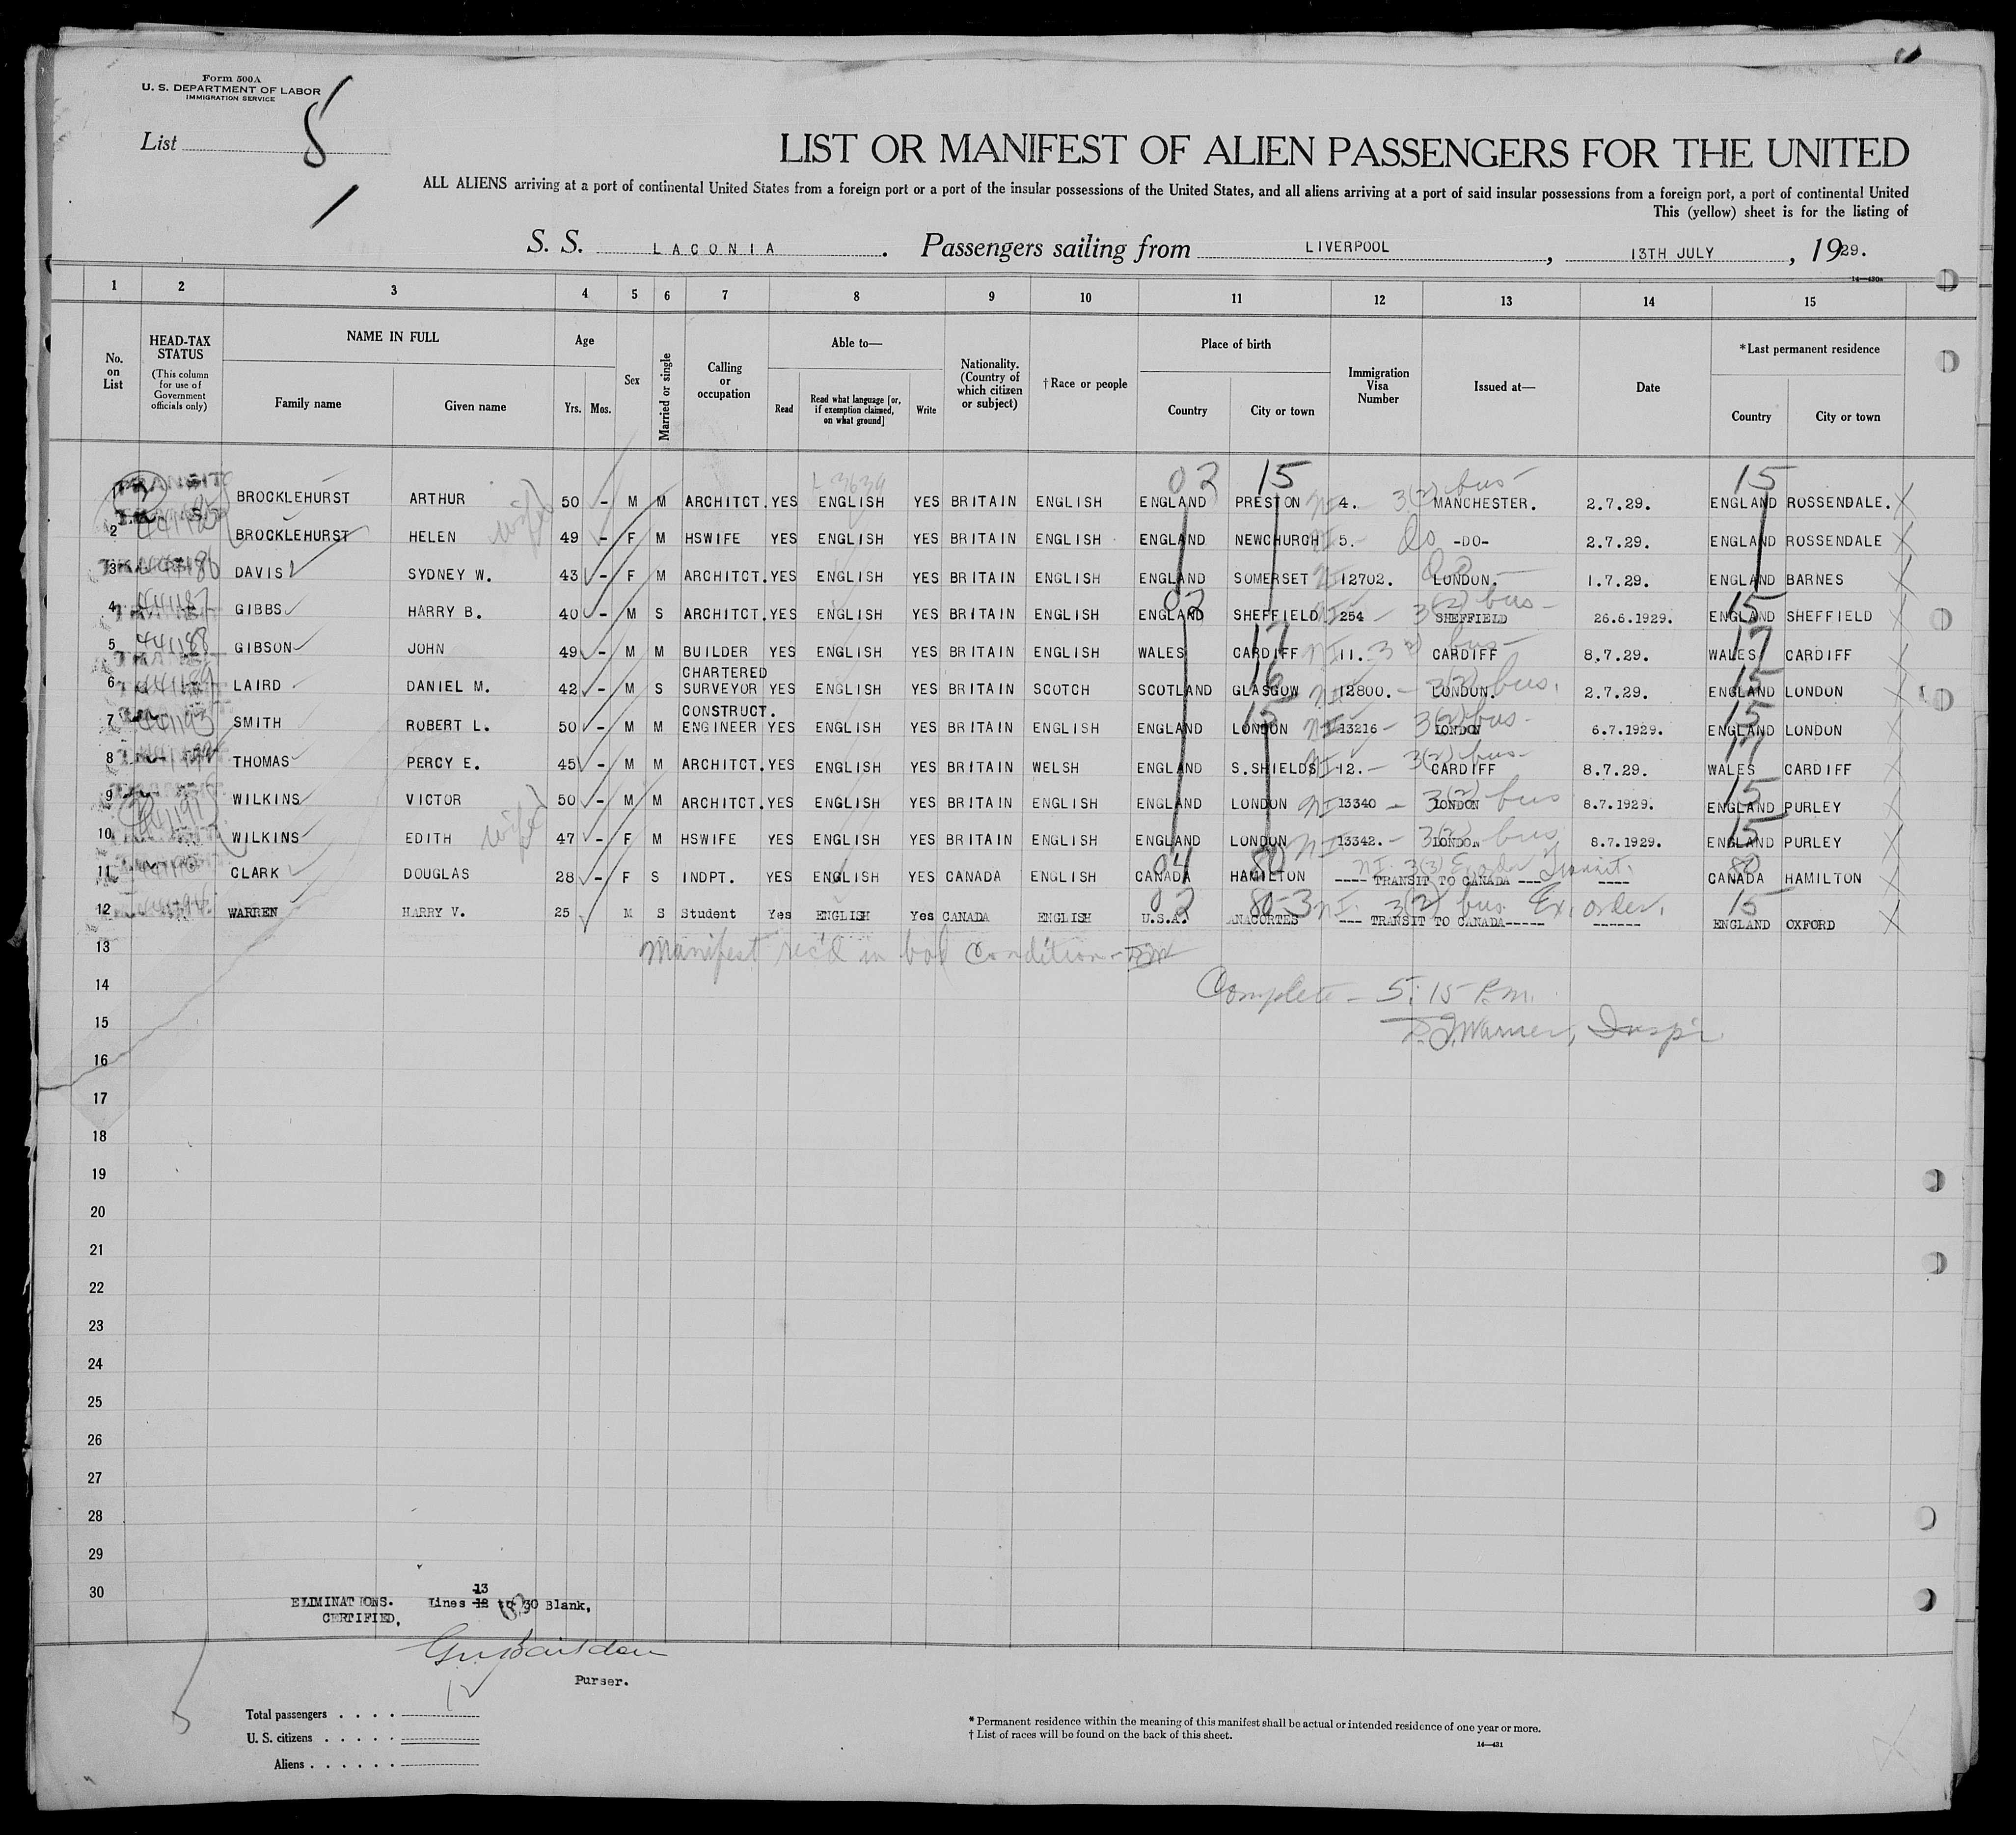 Form 500A
U. S. DEPARTMENT OF LABOR
IMMIGRATION SERVICE
List 8
LIST OR MANIFEST OF ALIEN PASSENGERS FOR THE UNITED
ALL ALIENS arriving at a port of continental United States from a foreign port or a port of the insular possessions of the United States, and all aliens arriving at a port of said insular possessions from a foreign port, a port of continental United
This (yellow) sheet is for the listing of
S. S. LACONIA. Passengers sailing from LIVERPOOL, 13TH JULY, 1929.
14—430a
1 2 3 4 5 6 7 8 9 10 11 12 13 14 15
No. on List
HEAD-TAX STATUS (This column for use of Government officials only)
NAME IN FULL Family name Given name
Age Yrs. Mos.
Sex
Married or single
Calling or occupation
Able to— Read Read what language [or, if exemption claimed, on what ground] Write
Nationality. (Country of which citizen or subject)
† Race or people
Place of birth Country City or town
Immigration Visa Number
Issued at—
Date
*Last permanent residence Country City or town
02 15 3(2) bus 15
1 BROCKLEHURST ARTHUR 50 - M M ARCHITCT. YES ENGLISH YES BRITAIN ENGLISH ENGLAND PRESTON NI 4. MANCHESTER. 2.7.29. ENGLAND ROSSENDALE. X
wife
2 BROCKLEHURST HELEN 49 - F M HSWIFE YES ENGLISH YES BRITAIN ENGLISH ENGLAND NEWCHURCH NI 5. Do -DO- 2.7.29. ENGLAND ROSSENDALE X
3 DAVIS SYDNEY W. 43 - F M ARCHITCT. YES ENGLISH YES BRITAIN ENGLISH ENGLAND SOMERSET NI 12702. LONDON. 1.7.29. ENGLAND BARNES X
02 3(2) bus 15
4 441187 GIBBS HARRY B. 40 - M S ARCHITCT. YES ENGLISH YES BRITAIN ENGLISH ENGLAND SHEFFIELD NI 254 SHEFFIELD 26.6.1929. ENGLAND SHEFFIELD X
17 3(2) bus 17
5 441188 GIBSON JOHN 49 - M M BUILDER YES ENGLISH YES BRITAIN ENGLISH WALES CARDIFF NI 11. CARDIFF 8.7.29. WALES CARDIFF X
CHARTERED 16 3(2) bus. 15
6 441189 LAIRD DANIEL M. 42 - M S SURVEYOR YES ENGLISH YES BRITAIN SCOTCH SCOTLAND GLASGOW NI 12800. LONDON. 2.7.29. ENGLAND LONDON X
CONSTRUCT. 15 3(2) bus 15
7 441193 SMITH ROBERT L. 50 - M M ENGINEER YES ENGLISH YES BRITAIN ENGLISH ENGLAND LONDON NI 13216 LONDON 6.7.1929. ENGLAND LONDON X
3(2) bus 17
8 THOMAS PERCY E. 45 - M M ARCHITCT. YES ENGLISH YES BRITAIN WELSH ENGLAND S.SHIELDS NI 12. CARDIFF 8.7.29. WALES CARDIFF X
3(2) bus 15
9 WILKINS VICTOR 50 - M M ARCHITCT. YES ENGLISH YES BRITAIN ENGLISH ENGLAND LONDON NI 13340 LONDON 8.7.1929. ENGLAND PURLEY X
wife 3(2) bus 15
10 WILKINS EDITH 47 - F M HSWIFE YES ENGLISH YES BRITAIN ENGLISH ENGLAND LONDON NI 13342. LONDON 8.7.1929. ENGLAND PURLEY X
04 80 NI 3(3) Ex order Transit. 80
11 CLARK DOUGLAS 28 - F S INDPT. YES ENGLISH YES CANADA ENGLISH CANADA HAMILTON ---- TRANSIT TO CANADA --- ---- CANADA HAMILTON X
02 80-3 NI 3(2) bus. Ex. order. 15
12 WARREN HARRY V. 25 M S Student Yes ENGLISH Yes CANADA ENGLISH U.S.A. ANACORTES --- TRANSIT TO CANADA----- ------ ENGLAND OXFORD X
13 Manifest rec'd in bad condition
14 Complete - 5:15 P.m.
15 Warner, Insp'r
16
17
18
19
20
21
22
23
24
25
26
27
28
29
30
13
ELIMINATIONS. Lines 12 to 30 Blank,
CERTIFIED,
Purser.
12
Total passengers . . . .
U. S. citizens . . . . .
Aliens . . . . . .
* Permanent residence within the meaning of this manifest shall be actual or intended residence of one year or more.
† List of races will be found on the back of this sheet.
14—431